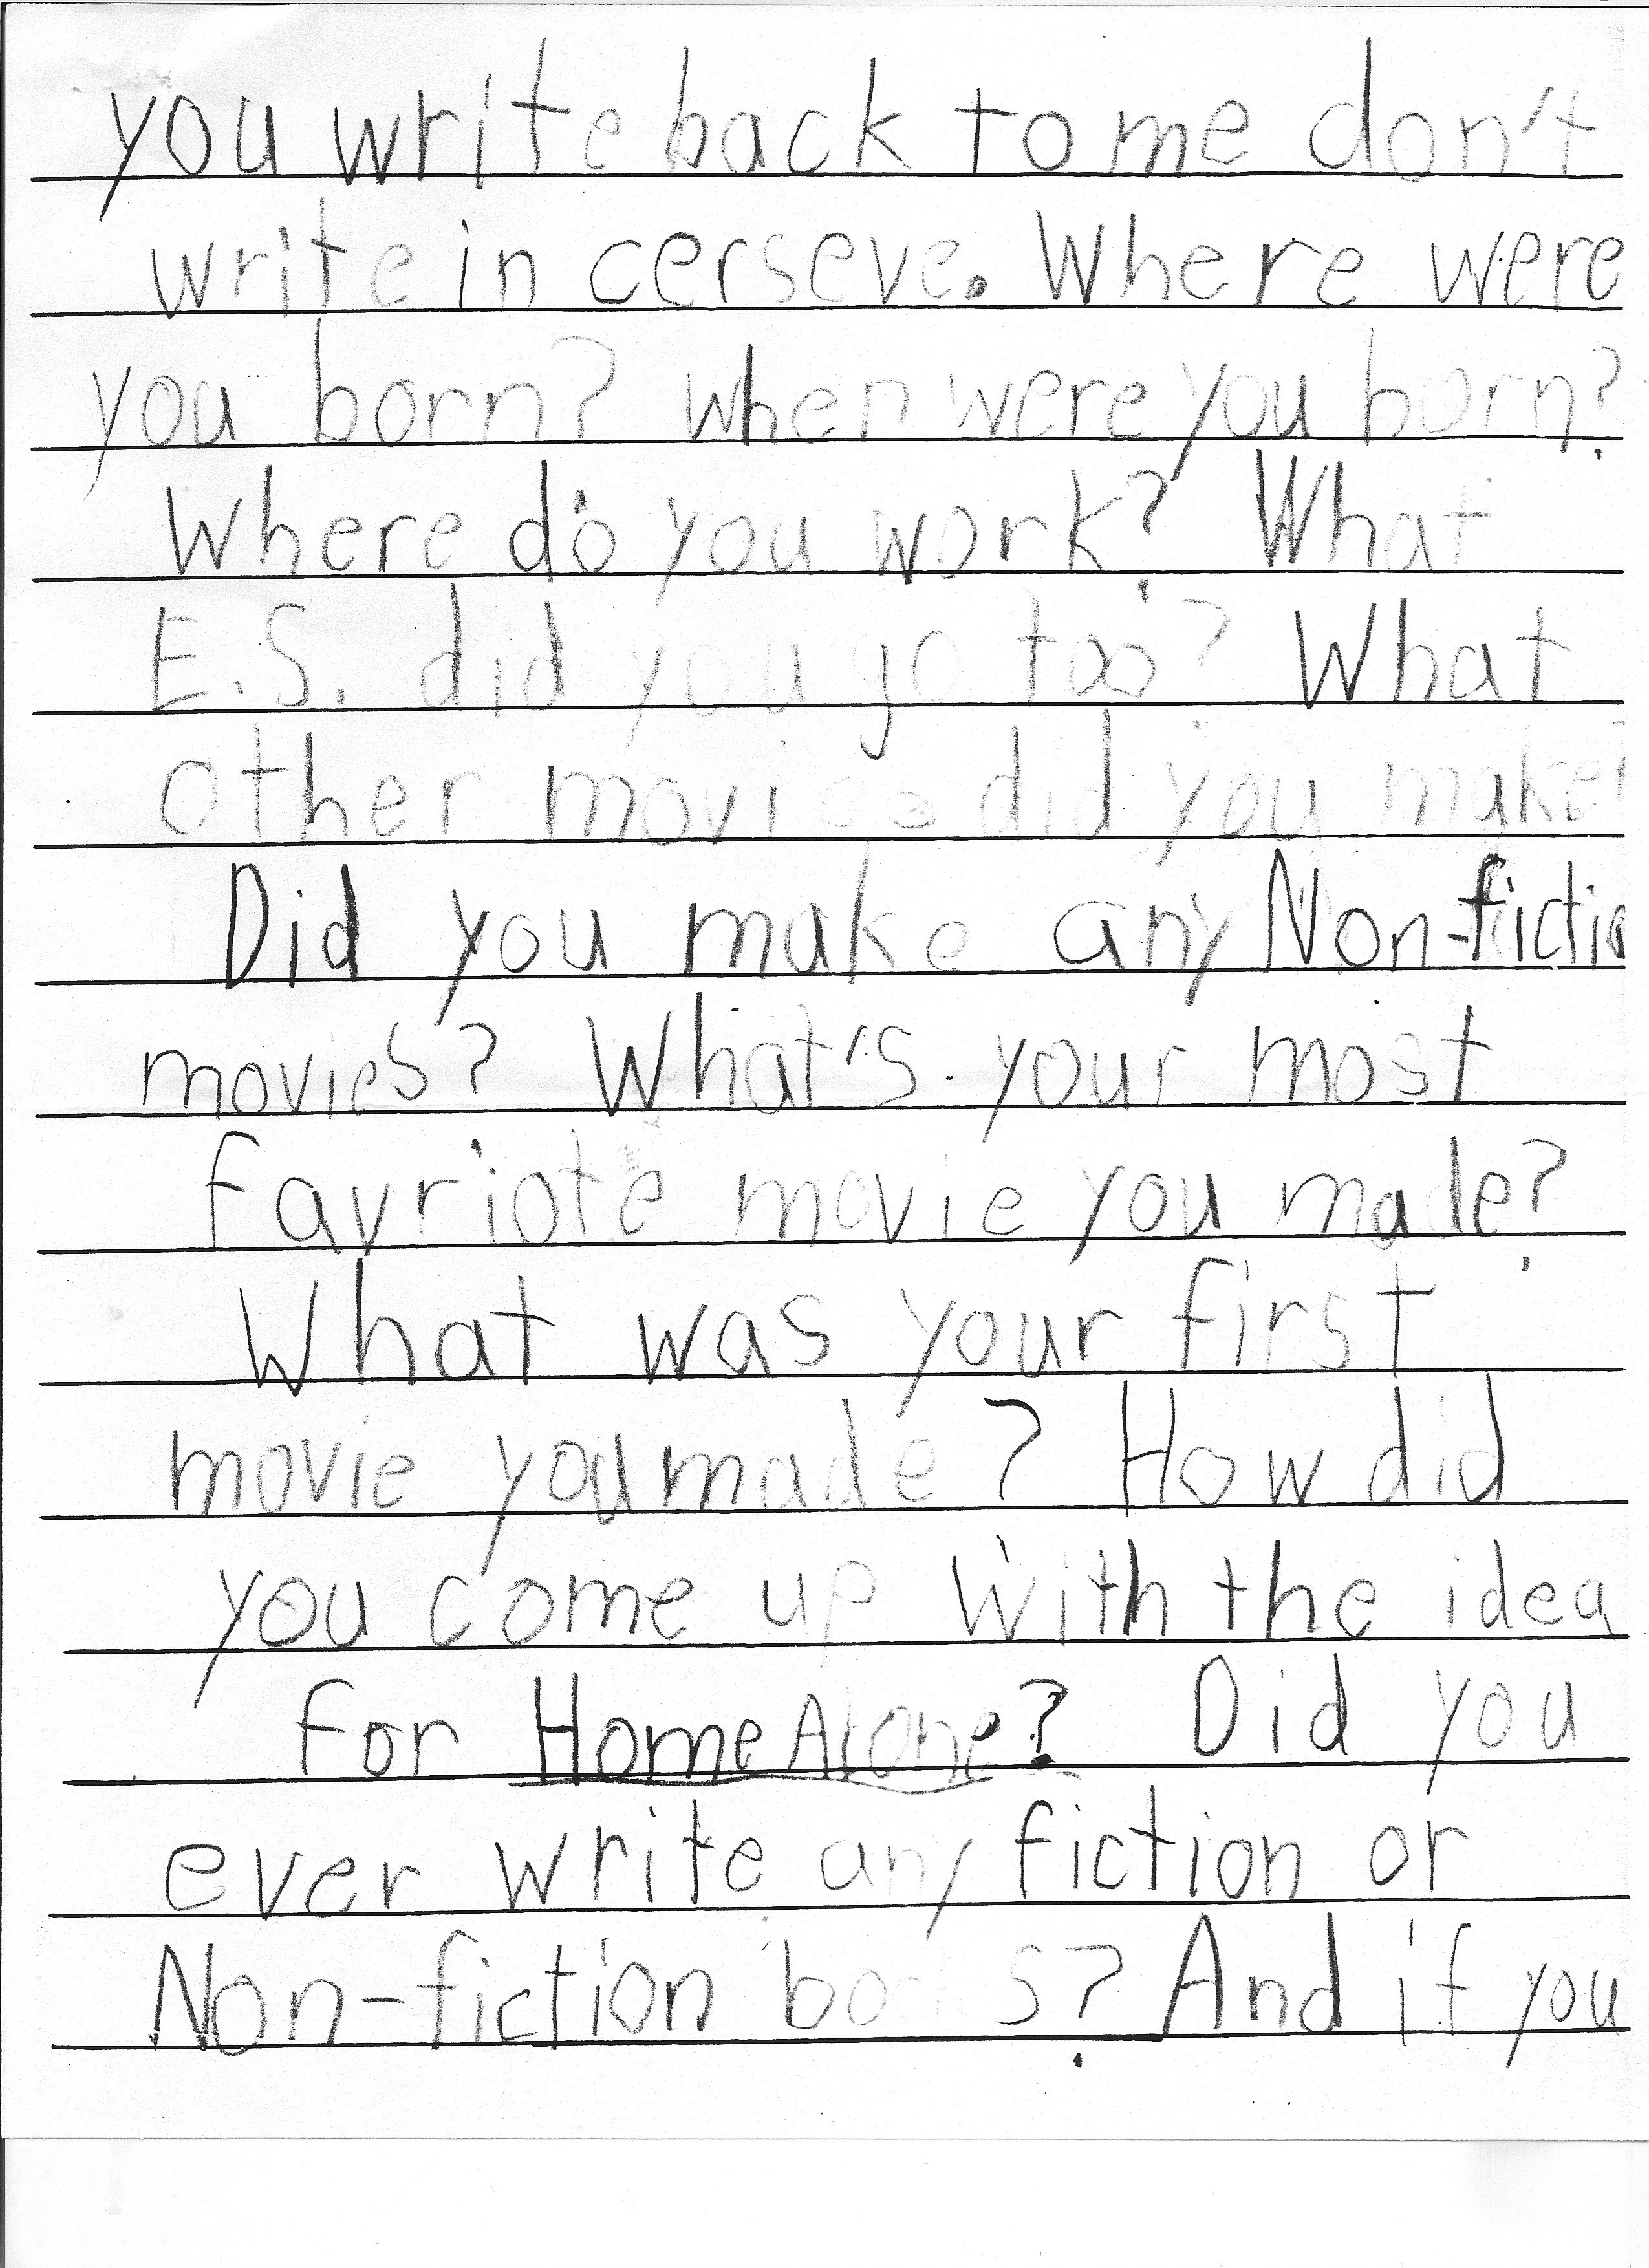 you write back to me don't
write in cerseve. Where were
you born? When were you born?
Where do you work? What
E.S. did you go too? What
other movies did you make?
Did you make any Non-fictio
movies? What's your most
favriote movie you made?
What was your first
movie you made? How did
you come up with the idea
for Home Alone? Did you
ever write any fiction or
Non-fiction books? And if you